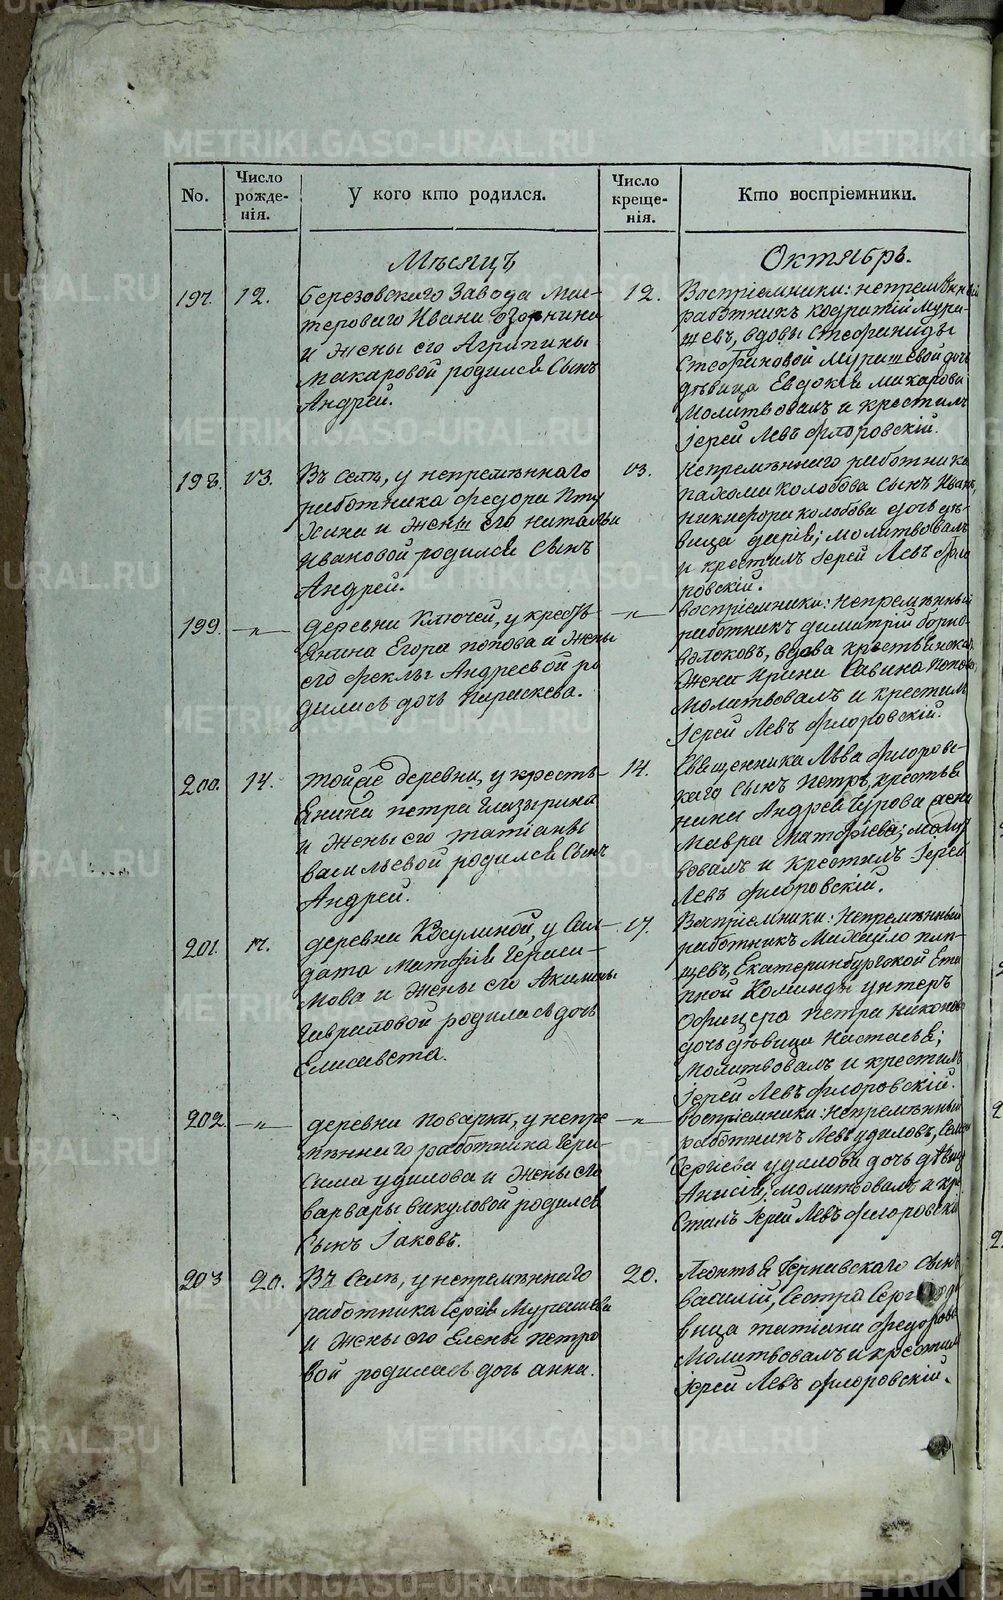 No.
Число рожденія.
У кого кто родился.
Число крещенія.
Кто воспріемники.
Мѣсяцъ
Октябрь.
197.
12.
Березовскаго Завода Мас-
тероваго Ивана
и жены его Агрипины
Макаровой родился Сынъ
Андрей.
12.
Воспріемники: непремѣнный
работникъ Кодратій Мура-
шевъ, вдовы Стефаниды
Стефановой Мурашевой дочь
дѣвица Евдокія Макарова
Молитвовалъ и крестилъ
іерей Левъ Флоровскій.
198.
13.
Въ Селѣ, у непремѣннаго
работника Федора Пту
хина и жены его Натальи
Ивановой родился Сынъ
Андрей.
13.
Непремѣннаго работника
Пахома Колобова Сынъ Иванъ,
Никифора Колобова дочь дѣ-
вица Дарія; молитвовалъ
и крестилъ Іерей Левъ Фло
ровскій.
199.
—„—
деревни Ключей, у кресть
янина Егора Попова и жены
его Феклы Андреевой ро
дилась дочь Параскева.
—„—
Воспріемники: Непремѣнный
работникъ Димитрій Борно-
волоковъ, вдова крестьянская
жена Ирина Савина Попова,
Молитвовалъ и крестилъ
іерей Левъ Флоровскій.
200.
14.
тойже деревни, у кресть-
янина Петра Глазырина
и жены его Татіаны
Васильевой родился Сынъ
Андрей.
14.
Священника Льва Флоровс-
каго Сынъ Петръ, крестья
нина Андрея жена
Мавра Матфіева; молит
вовалъ и крестилъ Іерей
Левъ Флоровскій.
201.
17.
деревни у Сол-
дата Матфія Гераси-
мова и жены его Акилины
Гавриловой родилась дочь
Елисавета.
17.
Воспріемники: Непремѣнный
работникъ Михайло
Екатеринбургской Ета
пной Команды унтеръ
Офицера Петра
дочь дѣвица Настасья;
Молитвовалъ и крестилъ
Іерей Левъ Флоровскій.
202.
—„—
деревни Поварни, у непре
мѣннаго работника Гера-
сима Удилова и жены его
Варвары Викуловой родился
Сынъ Іаковъ.
—„—
Воспріемники: Непремѣнный
работникъ Левъ Удиловъ,
Сергіева Удилова дочь дѣвица
Анисія; молитвовалъ и кре
стилъ Іерей Левъ Флоровскій
203
20.
Въ Селѣ, у непремѣннаго
работника Сергія Мурашева
и жены его Елены Петро
вой родилась дочь Анна.
20.
Леонтья Чернавскаго Сынъ
Василій, Сестра
вица Татіана Федорова
Молитвовалъ и крестилъ
іерей Левъ Флоровскій.
METRIKI.GASO-URAL.RU